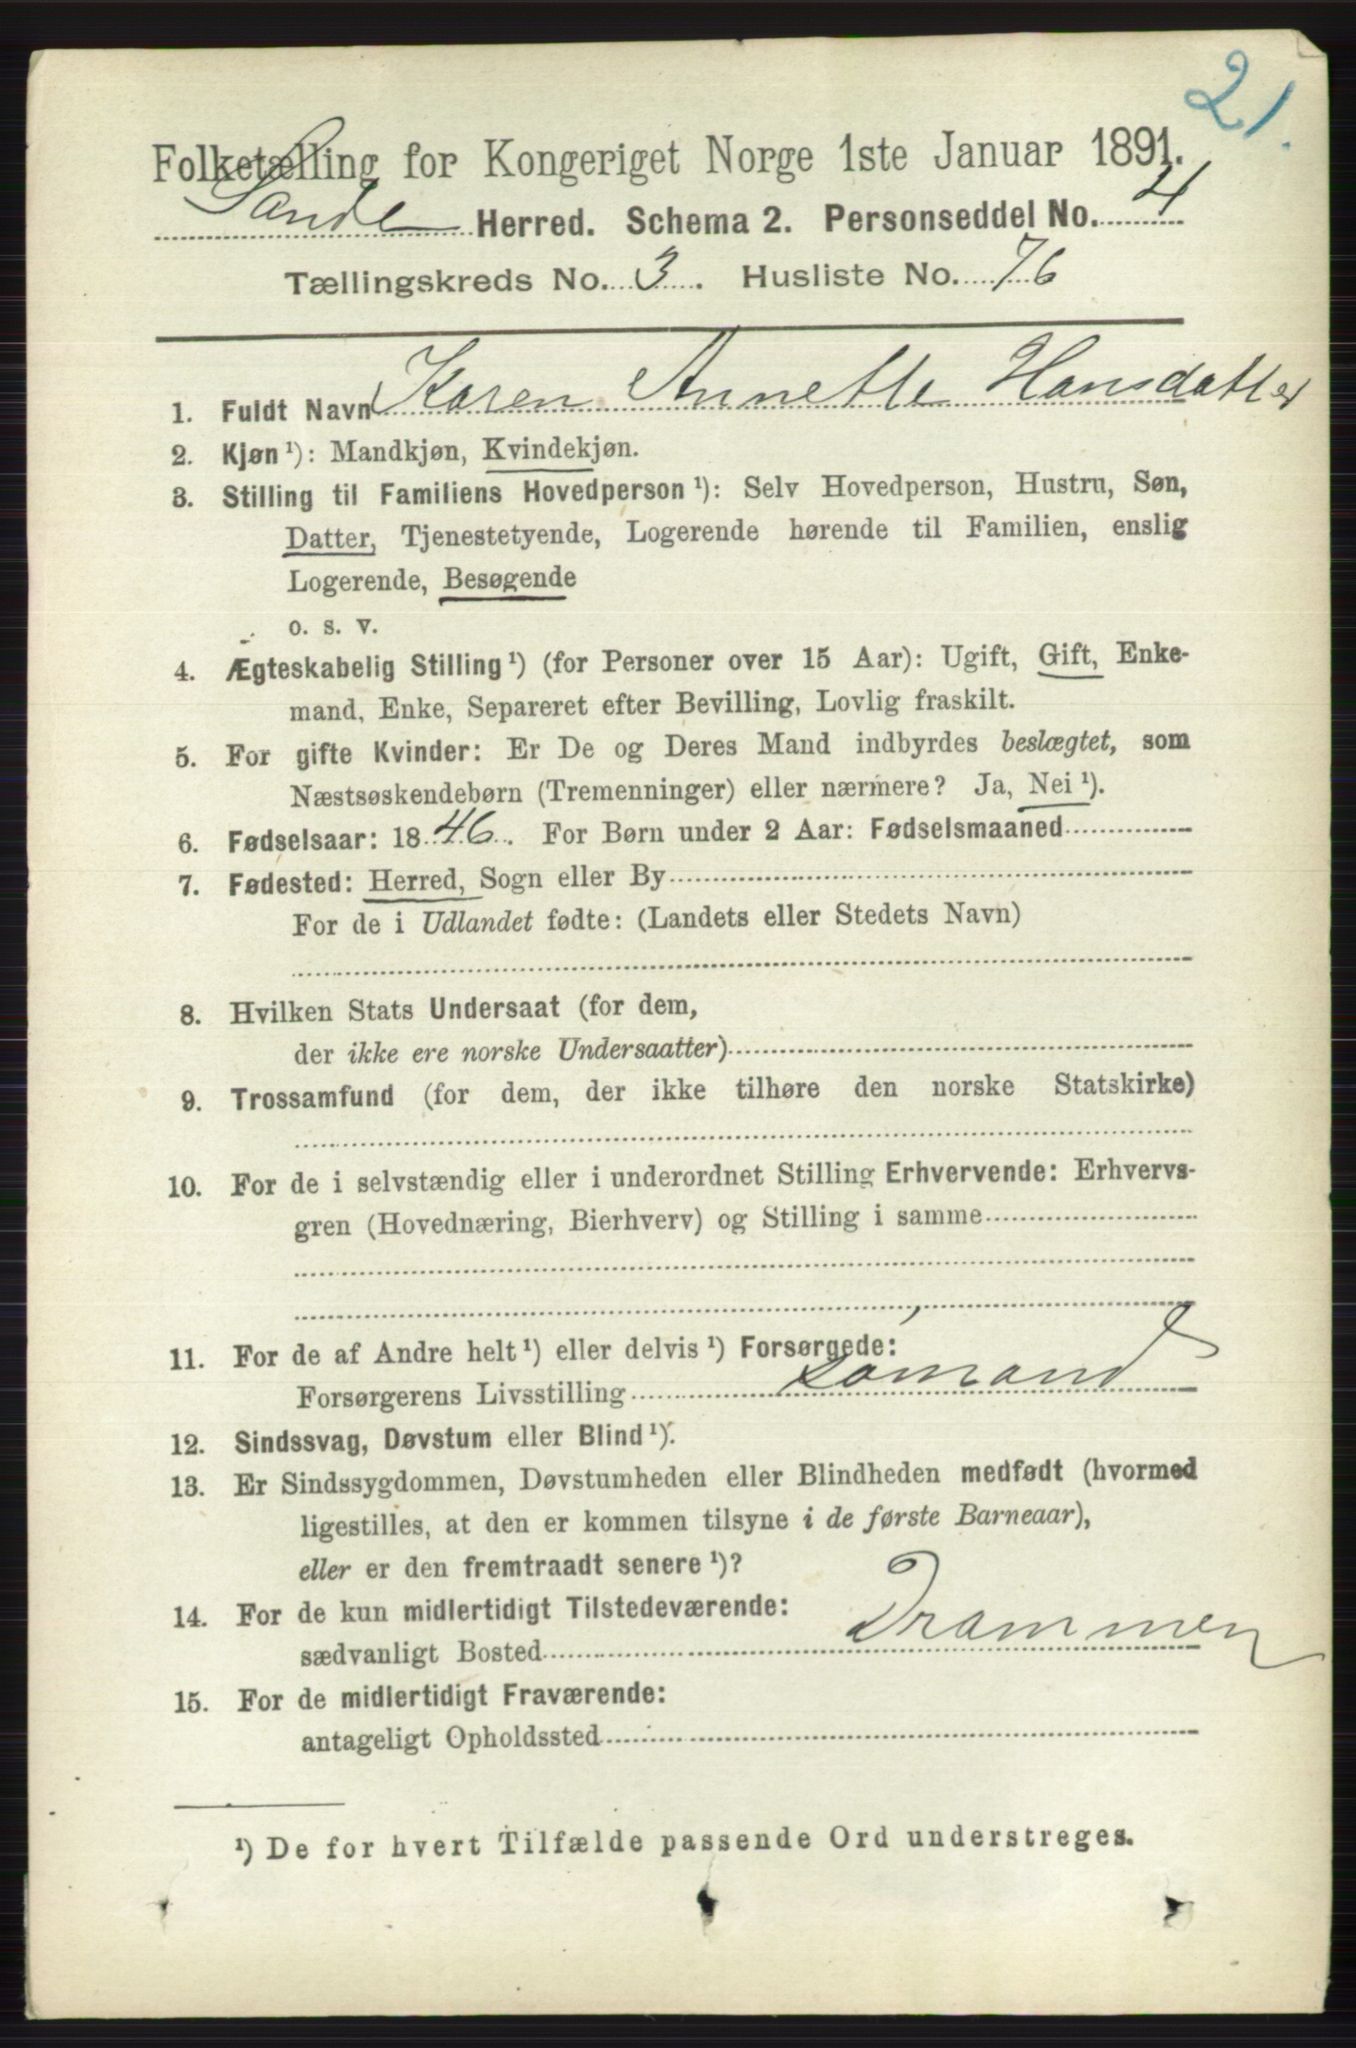 21.
Folketælling for Kongeriget Norge 1ste Januar 1891.
Sande Herred. Schema 2. Personseddel No. 4
Tællingskreds No. 3. Husliste No. 76
1. Fuldt Navn Karen Annette Hansdatter
2. Kjøn ¹): Mandkjøn, Kvindekjøn.
3. Stilling til Familiens Hovedperson ¹): Selv Hovedperson, Hustru, Søn,
Datter, Tjenestetyende, Logerende hørende til Familien, enslig
Logerende, Besøgende
o. s. v.
4. Ægteskabelig Stilling ¹) (for Personer over 15 Aar): Ugift, Gift, Enke-
mand, Enke, Separeret efter Bevilling, Lovlig fraskilt.
5. For gifte Kvinder: Er De og Deres Mand indbyrdes beslægtet, som
Næstsøskendebørn (Tremenninger) eller nærmere? Ja, Nei ¹).
6. Fødselsaar: 1846. For Børn under 2 Aar: Fødselsmaaned
7. Fødested: Herred, Sogn eller By
For de i Udlandet fødte: (Landets eller Stedets Navn)
8. Hvilken Stats Undersaat (for dem,
der ikke ere norske Undersaatter)
9. Trossamfund (for dem, der ikke tilhøre den norske Statskirke)
10. For de i selvstændig eller i underordnet Stilling Erhvervende: Erhvervs-
gren (Hovednæring, Bierhverv) og Stilling i samme
11. For de af Andre helt ¹) eller delvis ¹) Forsørgede:
Forsørgerens Livsstilling Sømand
12. Sindssvag, Døvstum eller Blind ¹).
13. Er Sindssygdommen, Døvstumheden eller Blindheden medfødt (hvormed
ligestilles, at den er kommen tilsyne i de første Barneaar),
eller er den fremtraadt senere ¹)?
14. For de kun midlertidigt Tilstedeværende:
sædvanligt Bosted Drammen
15. For de midlertidigt Fraværende:
antageligt Opholdssted
¹) De for hvert Tilfælde passende Ord understreges.